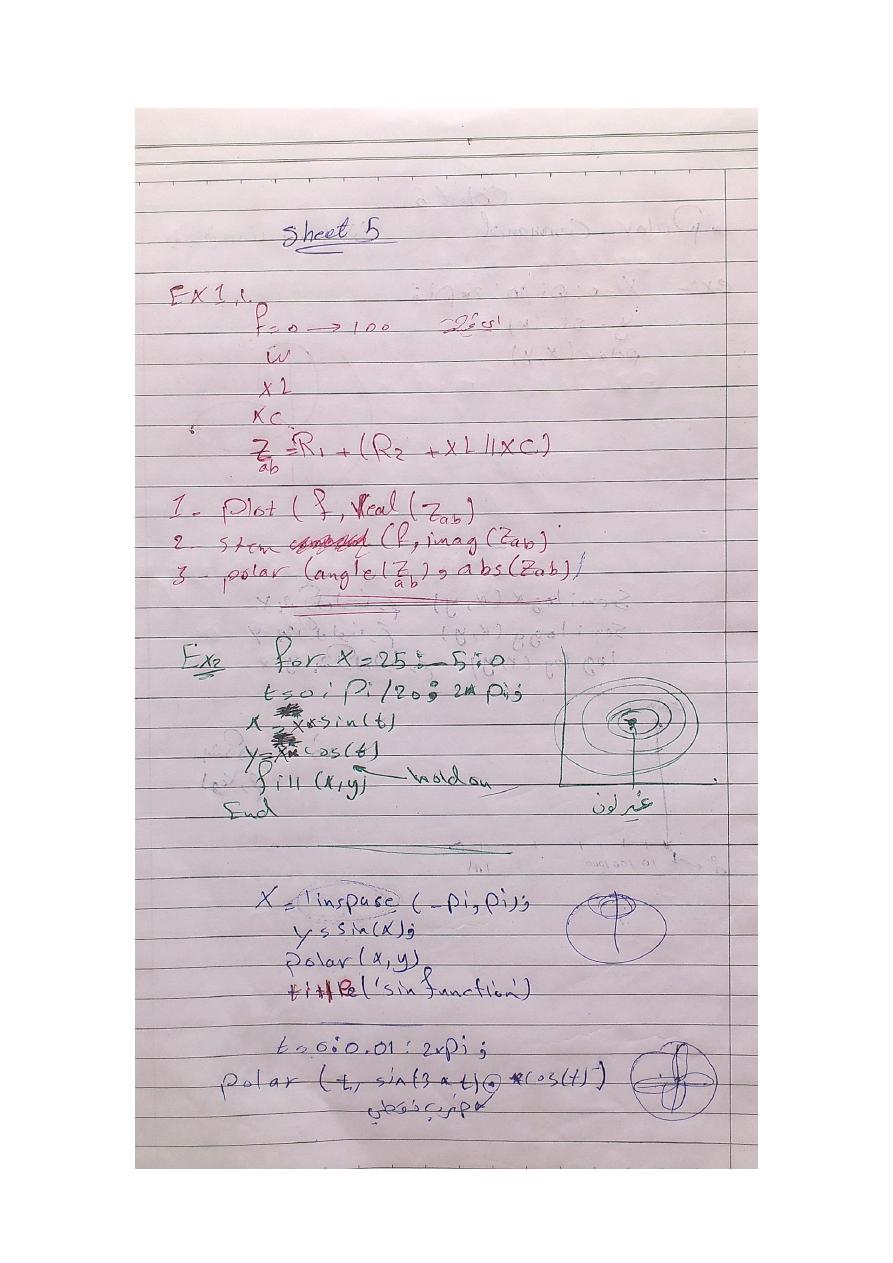 Sheet 5
Ex 1,
f=0 → 100
w
XL
XC
Zab = R1 + (R2 + XL // XC)
1- plot (f, real (Zab)
2- stem (f, imag (Zab)
3- polar (angle (Zab), abs (Zab))
Ex2 for X=25:-5:0
t=0:Pi/20:2*Pi;
x=x*sin(t)
y=x*cos(t)
fill (x,y) hold on
غير لون
End
X = linspase (-Pi, Pi);
y=sin(x);
polar (x,y)
title('sin function')
t=0:0.01:2*Pi;
polar (t, sin(3*t).*cos(t))
ضرب نقطي